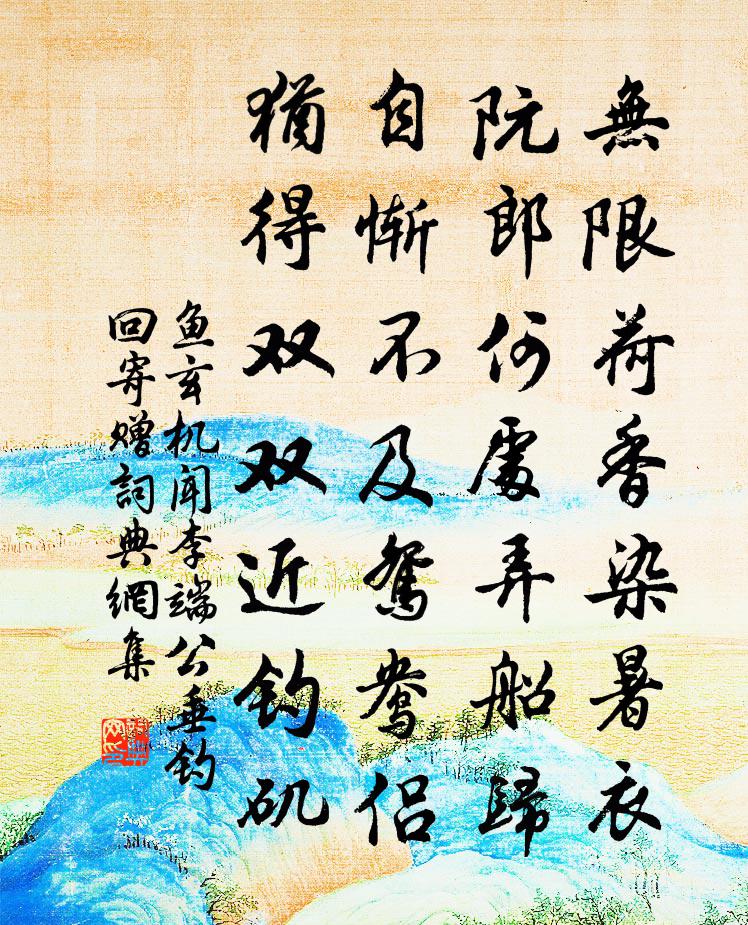 無限荷香染暑衣
阮郎何處弄船歸
自慚不及鴛鴦侣
猶得双双近釣矶
鱼玄机闻李端公垂钓
回寄赠詞典網集